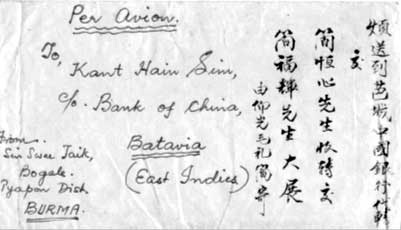 Per Avion.
To,
Kant Hain Sim,
c/o. Bank of China,
Batavia
(East Indies)
From.
Sin Swee Taik,
Bogale.
Pyapon Dist.
BURMA.
煩送到芭城中國銀行代轉
交
簡恒心先生收轉交
簡福輝先生大展
由仰光毛礼寄